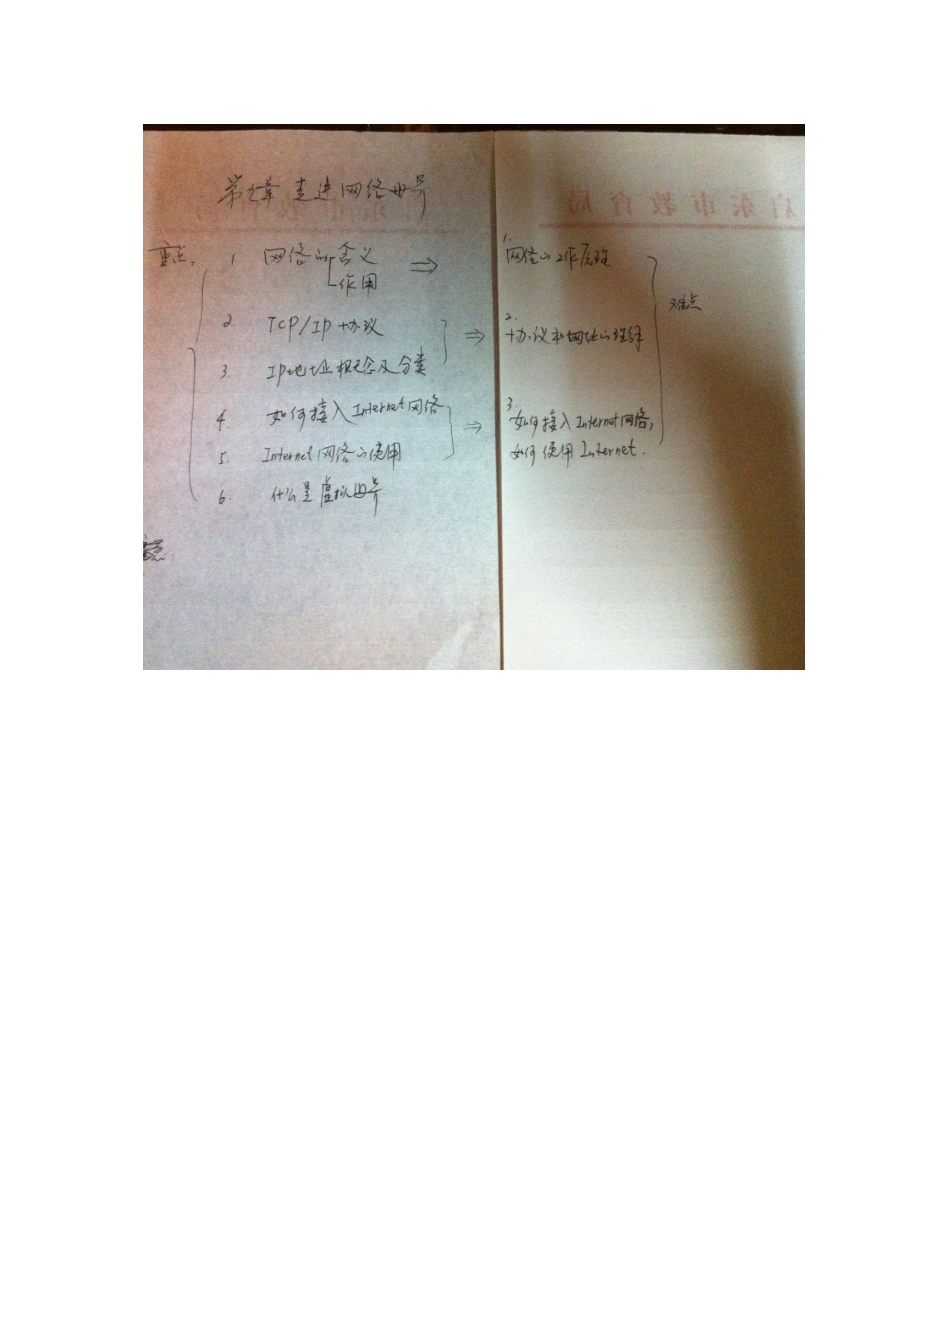 第九章 走进网络世界
重点:
1 网络的含义
作用
2 TCP/IP 协议
3. IP地址概念及分类
4. 如何接入Internet网络
5. Internet网络的使用
6. 什么是虚拟世界
⇒
1. 网络的工作原理
⇒
2. 协议和地址的理解
⇒
3. 如何接入Internet网络,
如何使用Internet.
难点
启东市教育局